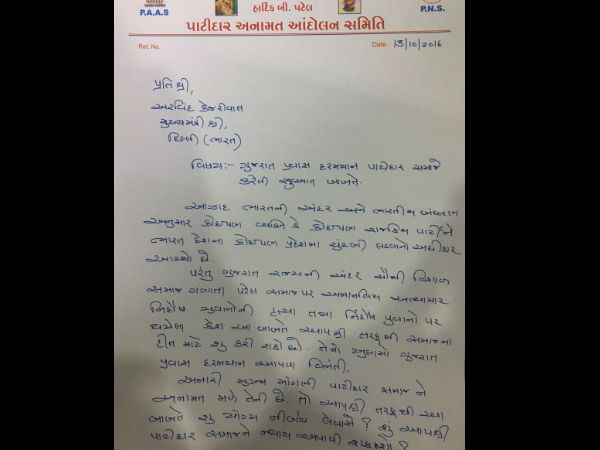 P.A.A.S
હાર્દિક બી. પટેલ
P.N.S.
પાટીદાર અનામત આંદોલન સમિતિ
Ref. No.
Date : 13/10/2016
પ્રતિ શ્રી,
અરવિંદ કેજરીવાલ
મુખ્યમંત્રી શ્રી,
દિલ્લી (ભારત)
વિષય:- ગુજરાત પ્રવાસ દરમ્યાન પાટીદાર સમાજે
કરેલી રજુઆત બાબતે.
આઝાદ ભારતની અંદર અને ભારતીય બંધારણ
અનુસાર કોઈપણ વ્યક્તિ કે કોઈપણ રાજકિય પાર્ટીને
ભારત દેશના કોઈપણ પ્રદેશમા ચુંટણી લડવાનો અધીકાર
આપ્યો છે.
પરંતુ ગુજરાત રાજ્યની અંદર સૌથી વિશાળ
સમાજ ગણાતા પટેલ સમાજ પર અમાનવિય અત્યાચાર
નિર્દોષ યુવાનોની હત્યા તથા નિર્દોષ યુવાનો પર
થયેલા કેશ આ બાબતે આપશ્રી તરફથી સમાજના
હીત માટે શુ કરી શકો છો. તેનો ખુલાસો ગુજરાત
પ્રવાસ દરમ્યાન આપવા વિનંતી.
અમારી મુખ્ય માંગણી પાટીદાર સમાજ ને
અનામત મળે તેની છે. તો આપશ્રી તરફથી આ
બાબતે શુ યોગ્ય નીર્ણય લેવાશે ? શું આપશ્રી
પાટીદાર સમાજને ન્યાય અપાવી શકશો ?